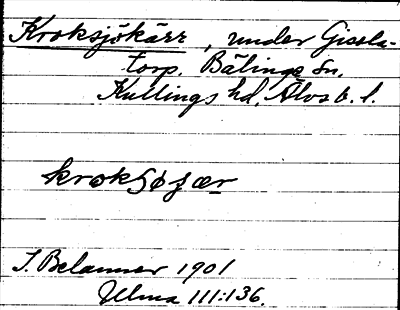 Kroksjökärr, under Gissla-
torp. Bälinge sn.
Kullings hd, Älvsb. l.
Belanner 1901
Ulma 111:136.